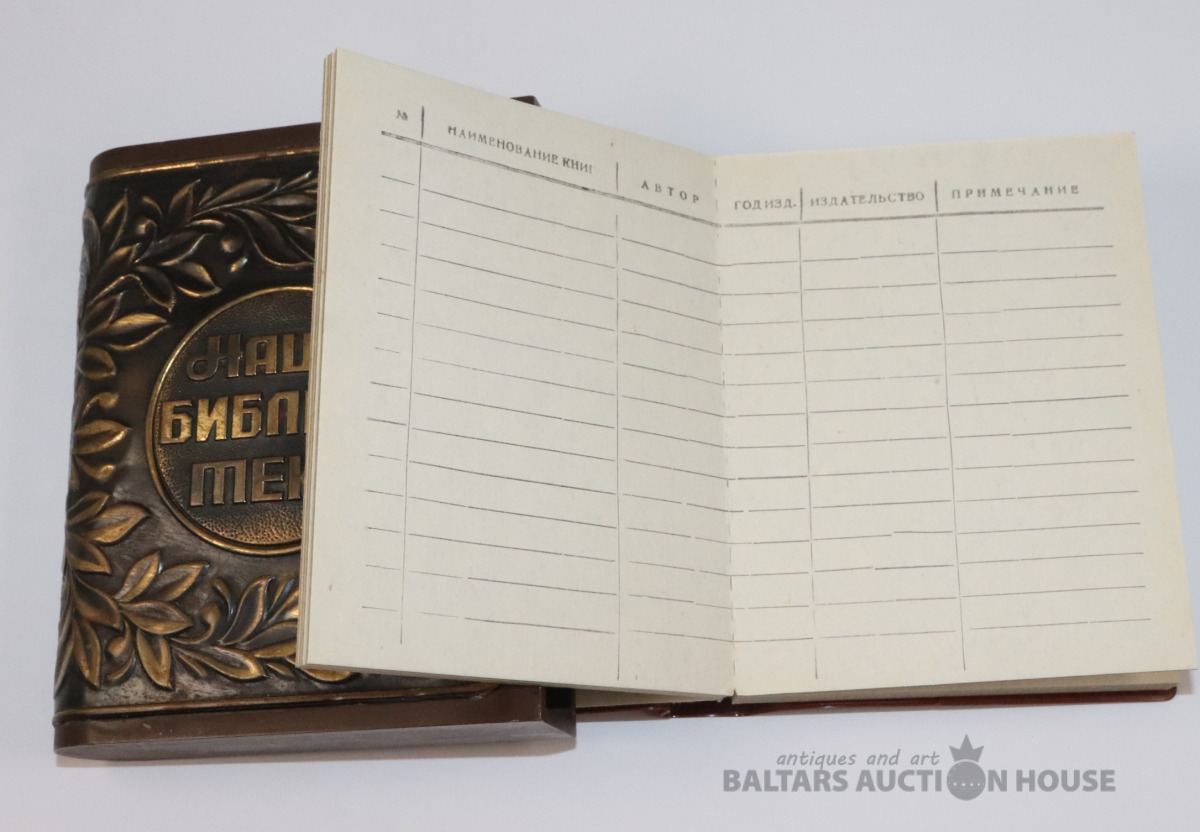 НАШ
БИБЛ
ТЕК
№ НАИМЕНОВАНИЕ КНИГ АВТОР
ГОД ИЗД. ИЗДАТЕЛЬСТВО ПРИМЕЧАНИЕ
antiques and art
BALTARS AUCTION HOUSE